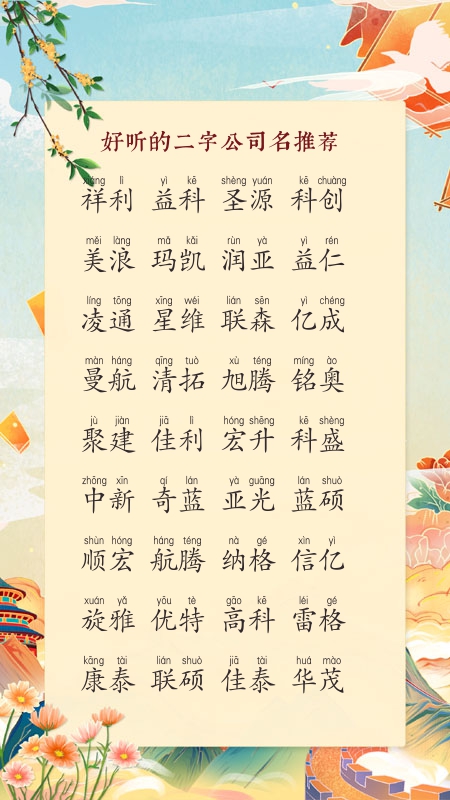 好听的二字公司名推荐
xiáng lì yì kē shèng yuán kē chuàng
祥利 益科 圣源 科创
měi làng mǎ kǎi rùn yà yì rén
美浪 玛凯 润亚 益仁
líng tōng xīng wéi lián sēn yì chéng
凌通 星维 联森 亿成
màn háng qīng tuò xù téng míng ào
曼航 清拓 旭腾 铭奥
jù jiàn jiā lì hóng shēng kē shèng
聚建 佳利 宏升 科盛
zhōng xīn qí lán yà guāng lán shuò
中新 奇蓝 亚光 蓝硕
shùn hóng háng téng nà gé xìn yì
顺宏 航腾 纳格 信亿
xuán yǎ yōu tè gāo kē léi gé
旋雅 优特 高科 雷格
kāng tài lián shuò jiā tài huá mào
康泰 联硕 佳泰 华茂